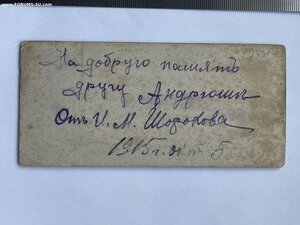 www.FORUMS-SU.com
На добрую память
другу Андрюше
Отъ И. М. Широкова
1915 г. окт 5